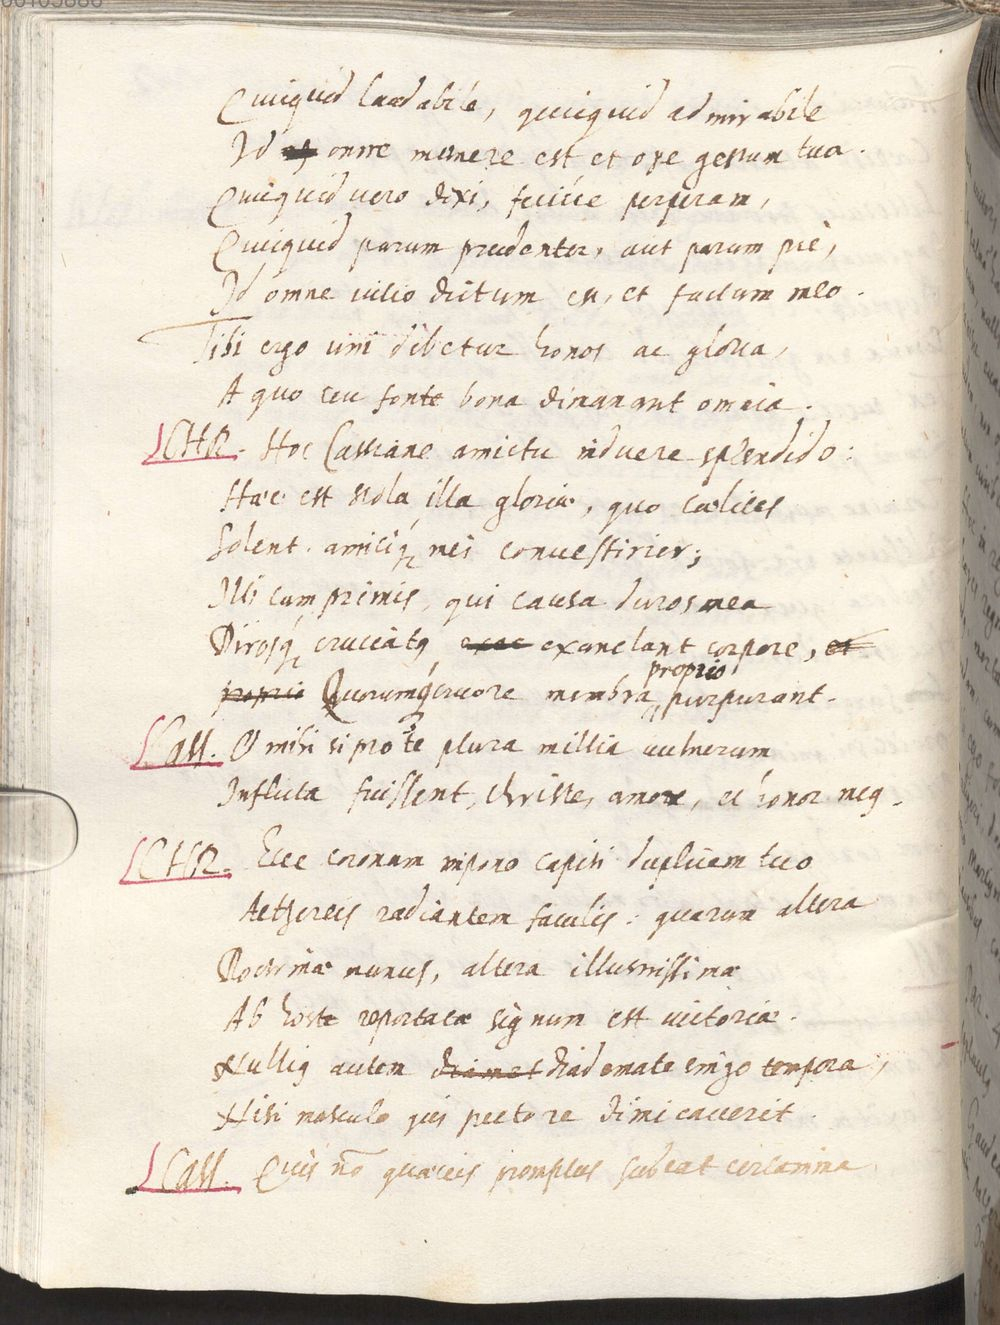 Quicquid laudabile, quicquid admirabile
Id omne munere est et ope gestum tua.
Quicquid vero dixi, fecive perperam,
Quicquid parum prudenter, aut parum pie,
Id omne vitio dictum est, et factum meo.
Tibi ergo uni debetur honos ac gloria,
A quo ceu fonte bona dimanant omnia.
CHR. Hoc Cassiane amictu induere splendido:
Haec est stola illa gloriae, quo caelites
Solent amiciq; mei convestirier;
Illi cum primis, qui causa duros mea
Dirosq; cruciatq exanclant corpore, et
proprio Quorumq; cruore membra proprio purpurant.
Cass. O mihi si pro te plura millia vulnerum
Inflicta fuissent, Christe, amor, et honor meq.
CHR. Ecce coronam impono capiti duplicem tuo
Aethereis radiantem faculis: quarum altera
Doctrinae munus, altera illustrissimae
Ab hoste reportatae signum est victoriae.
Nulliq autem diamat diademate cingo tempora,
Nisi masculo quis pectore dimicaverit.
Cass. Quis nõ quaevis promptus subeat certamina